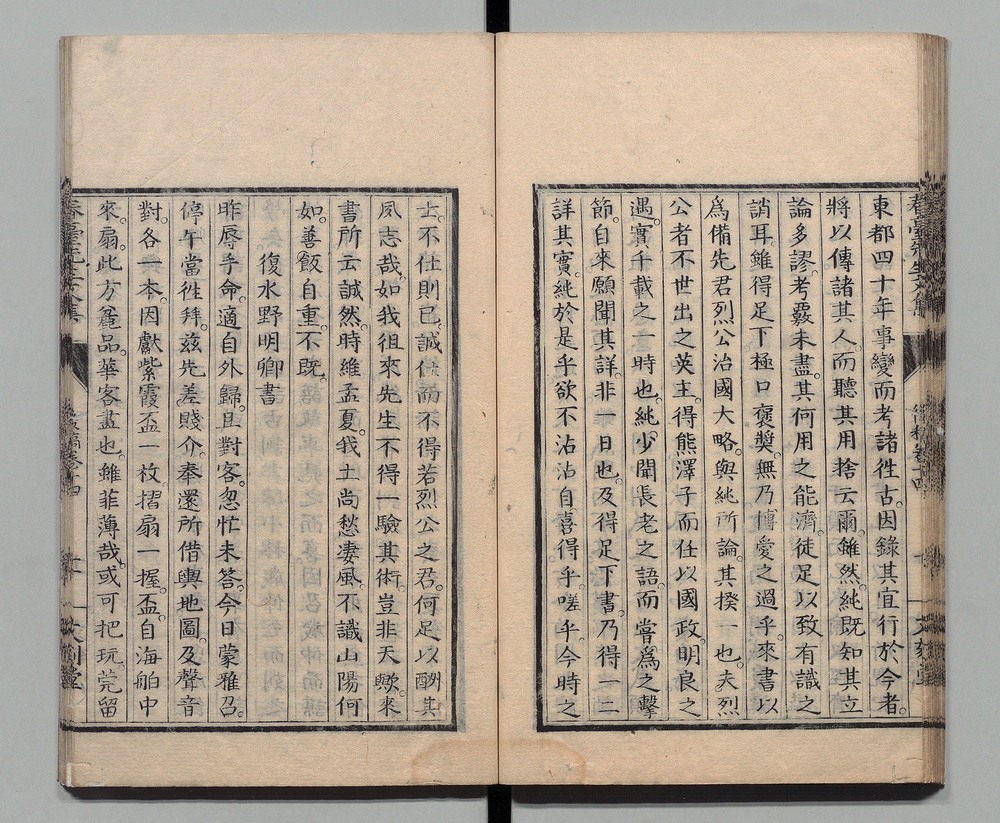 東都四十年事變而考諸徃古。因錄其宜行於今者。
將以傳諸其人。而聽其用捨云爾。雖然純既知其立
論多謬。考覈未盡。其何用之能濟。徒足以致有識之
誚耳。雖得足下極口褒奬。無乃愽愛之過乎。來書以
爲備先君烈公治國大略。與純所論。其揆一也。夫烈
公者不世出之英主。得熊澤子而仕以國政。明良之
遇。實千載之一時也。純少聞長老之語。而嘗爲之擊
節。自來願聞其詳。非一日也。及得足下書。乃得一二
詳其實。純於是乎欲不沾沾自喜得乎。嗟乎。今時之
士。不仕則已。誠仕而不得若烈公之君。何足以酬其
夙志哉。如我徂來先生不得一驗其術。豈非天歟。來
書所云誠然。時維孟夏。我土尚愁凄風。不識山陽何
如。善飯自重。不既。
復水野明卿書
昨辱手命。適自外歸。且對客。忽忙未答。今日蒙雅召。
停午當徃拜。兹先差賤介。奉還所借輿地圖。及聲音
對。各一本。因獻紫霞盃一枚摺扇一握。盃自海舶中
來。扇。此方麄品。華客畫也。雖菲薄哉。或可把玩。莞留
文刻堂